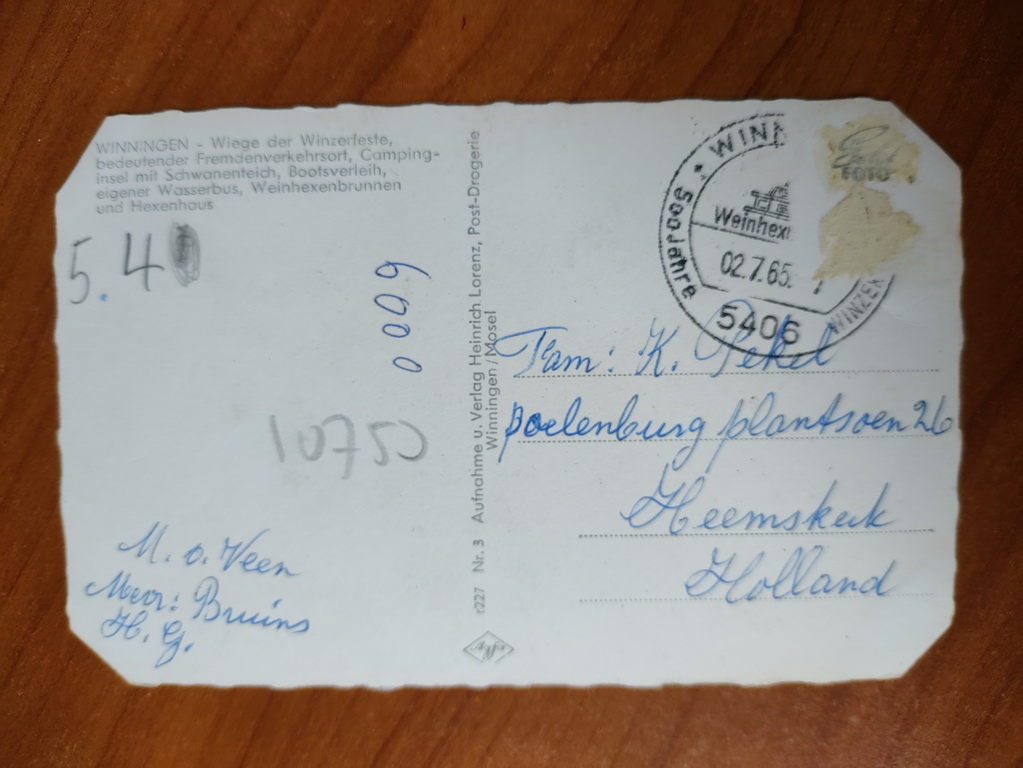 WINNINGEN - Wiege der Winzerfeste,
bedeutender Fremdenverkehrsort, Camping-
insel mit Schwanenteich, Bootsverleih,
eigener Wasserbus, Weinhexenbrunnen
und Hexenhaus
5.4
0009
10750
M. v. Veen
Mevr: Bruins
H. G.
r227 Nr. 3 Aufnahme u. Verlag Heinrich Lorenz, Post-Drogerie
Winningen/Mosel
Agfa
WINN
Weinhex
02.7.65
5406
WINZER
FOTO
Fam: K. Pekel
poelenburg plantsoen 26
Heemskerk
Holland